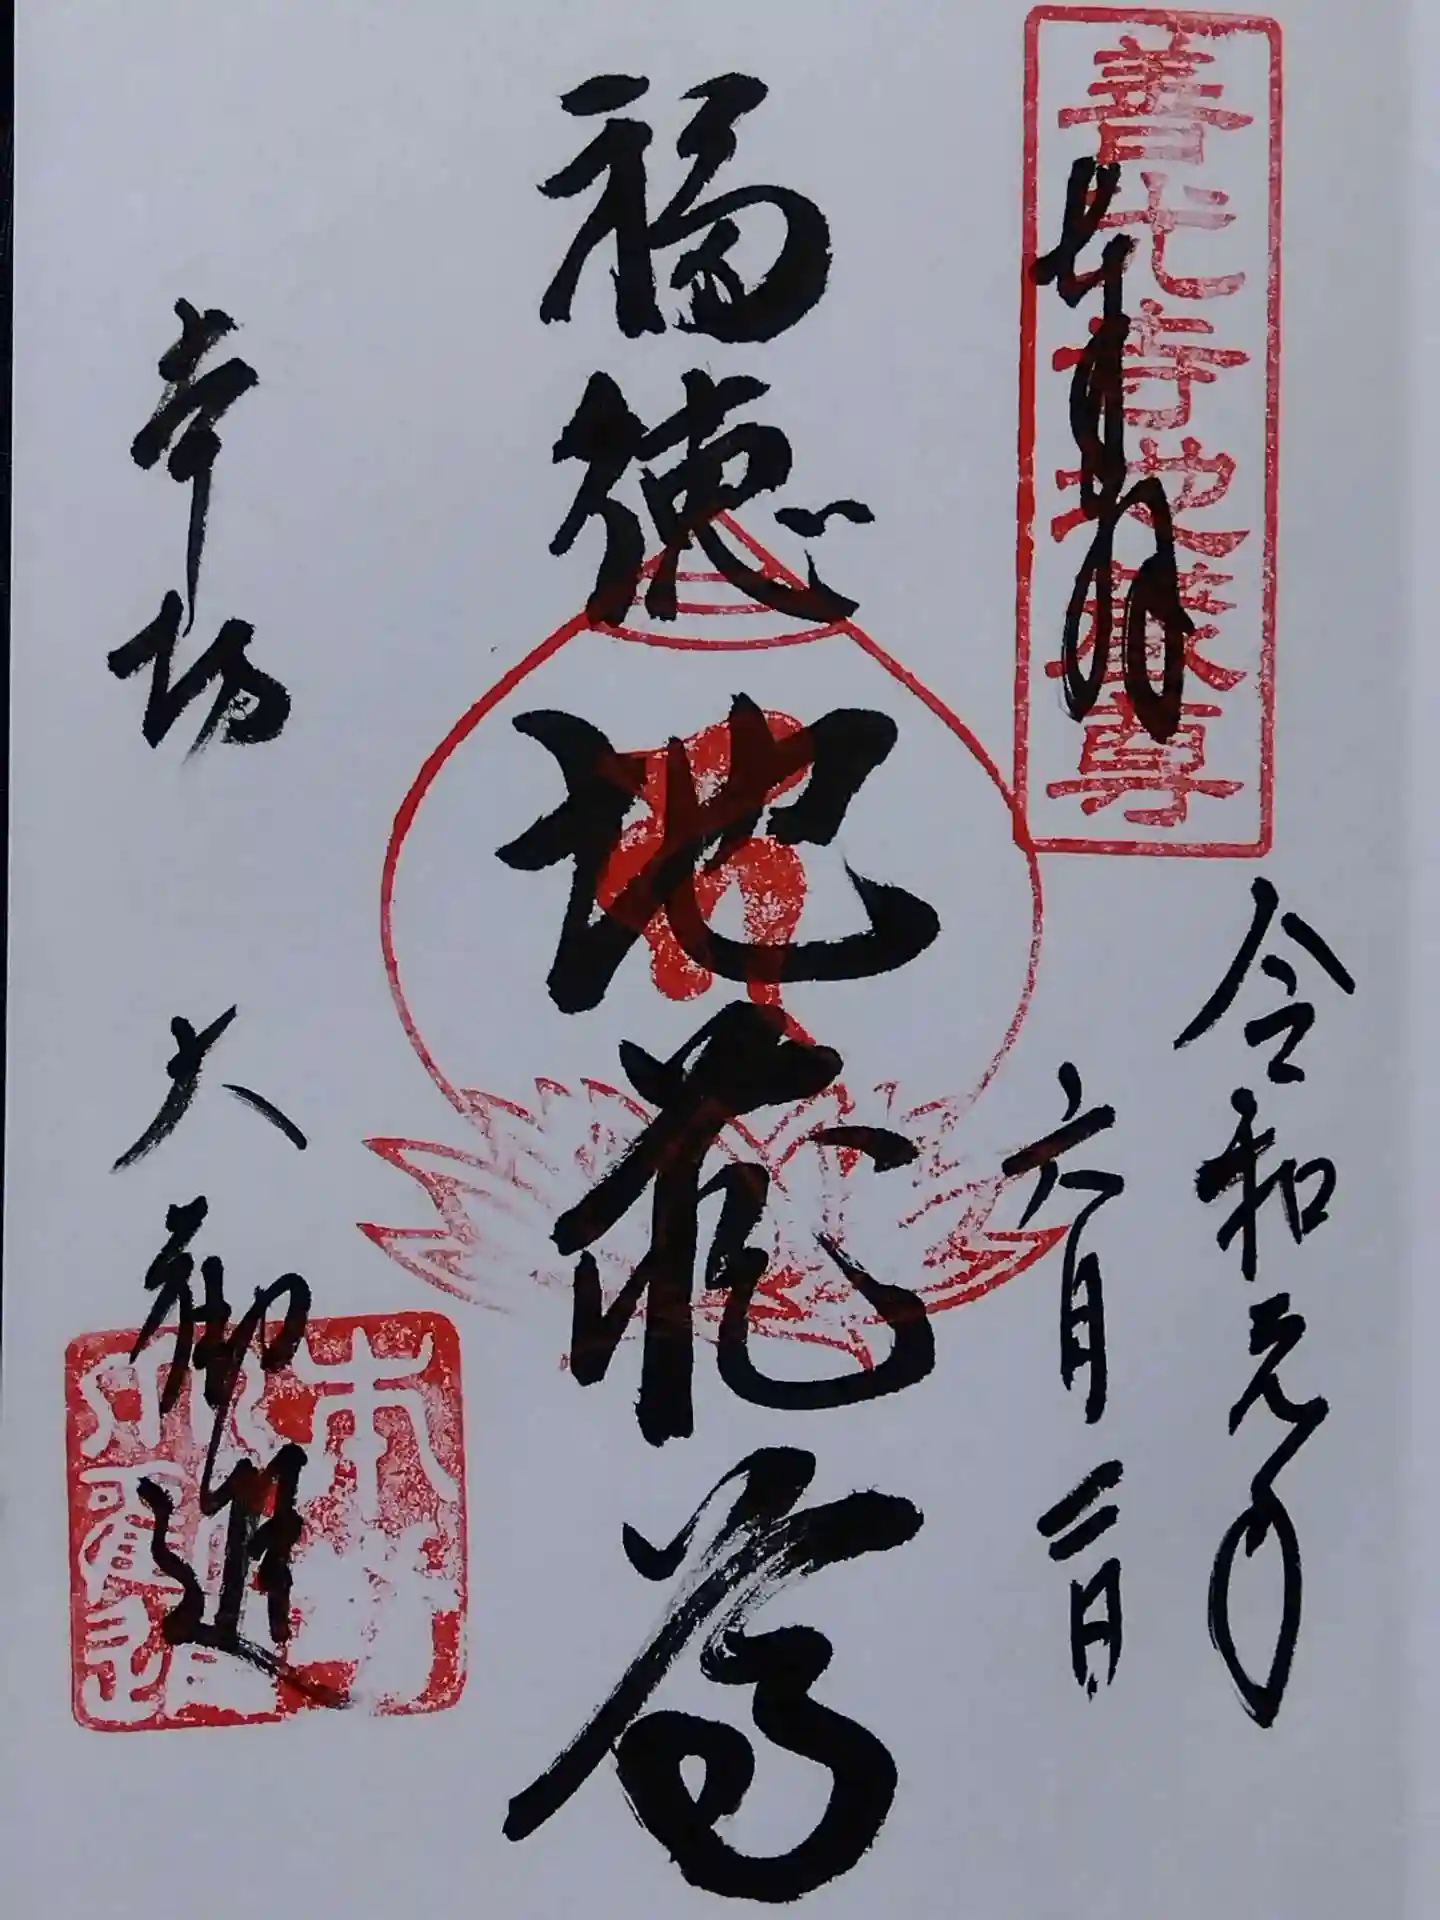 善光寺地蔵尊
奉拝
令和元年
六月二日
福徳地蔵尊
本坊
大勧進